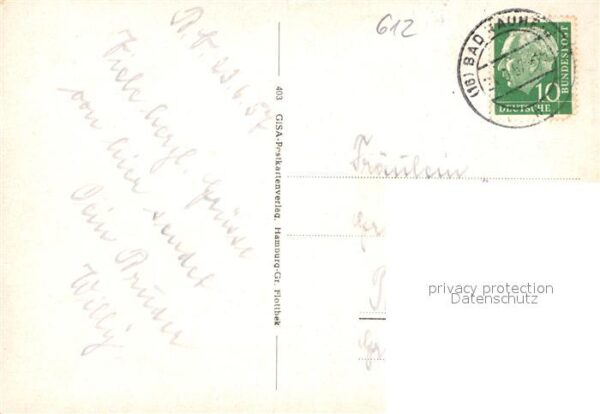 612
(16) BAD NAUHEIM
10
DEUTSCHE
BUNDESPOST
23.6.57
Viele herzl. Grüsse
von hier sendet
Dein Bruder
Willy.
403 GISA-Postkartenverlag, Hamburg-Gr. Flottbek
Fräulein
privacy protection
Datenschutz